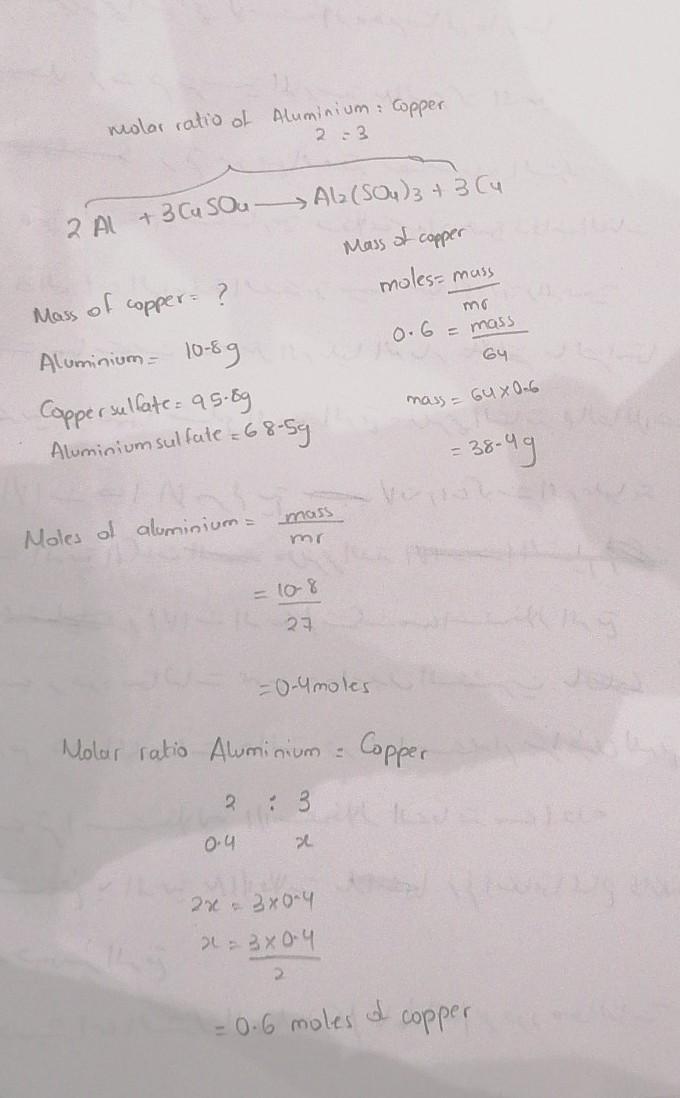 Molar ratio of Aluminium : Copper
2 : 3
2 Al + 3 CuSO4 → Al2(SO4)3 + 3 Cu
Mass of copper = ?
Aluminium = 10.8g
Copper sulfate = 95.8g
Aluminium sulfate = 68.5g
Mass of copper
moles = mass
mr
0.6 = mass
64
mass = 64 x 0.6
= 38.4g
Moles of aluminium = mass
mr
= 10.8
27
= 0.4 moles
Molar ratio Aluminium : Copper
2 : 3
0.4 x
2x = 3 x 0.4
x = 3 x 0.4
2
= 0.6 moles of copper